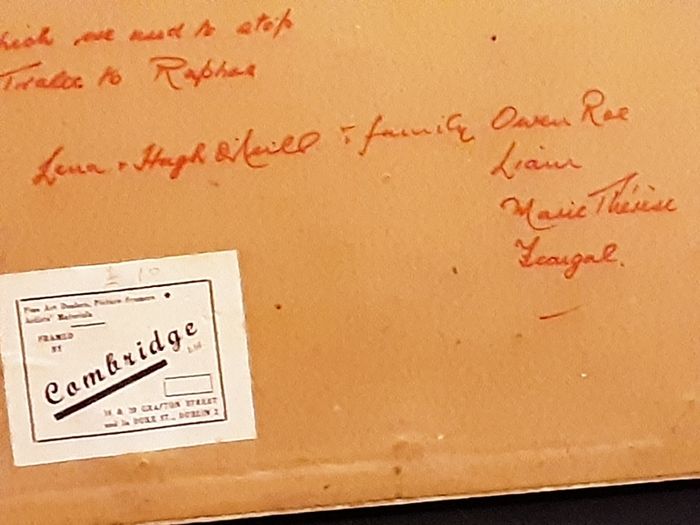 which we used to stop
Tralee to Raphoe
Lena + Hugh O'Neill + family Owen Roe
Liam
Marie Thérèse
Feargal.
Fine Art Dealers, Picture Framers
Artists' Materials
FRAMED
BY
Combridge
Ltd
18 & 20 GRAFTON STREET
and 1a DUKE ST., DUBLIN 2